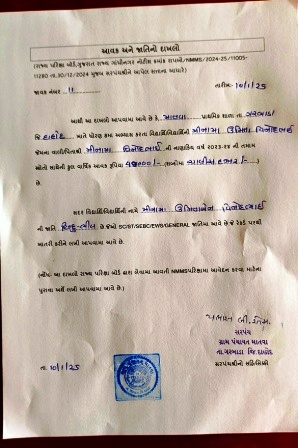 આવક અને જાતિનો દાખલો
(રાજ્ય પરિક્ષા બોર્ડ,ગુજરાત રાજ્ય ગાંધીનગર નોટીસ ક્રમાંક રાપબો/NMMS/2024-25/11005-
11280 તા.30/12/2024 મુજબ સરપંચશ્રીને આપેલ સત્તાના આધારે)
જાવક નંબર 11 તારીખ: 10/1/25
આથી આ દાખલો આપવામાં આવે છે કે, માતવા પ્રાથમિક શાળા તા ગરબાડા
જિ દાહોદ માંતે ધોરણ ૮મા અભ્યાસ કરતા વિદ્યાર્થી/વિદ્યાર્થિની મીનામા ઉર્મિલા વિનોદભાઈ
જેમના વાલી/પિતાશ્રી મીનામા વિનોદભાઈ ની નાણાંકિય વર્ષ 2023-24 ની તમામ
સ્ત્રોતો સાથેની કુલ વાર્ષિક આવક રૂપિયા 40000/- (શબ્દોમાં ચાલીસ હજાર /- )
છે.
સદર વિદ્યાર્થી/વિદ્યાર્થિની નામે મીનામા વિનોદભાઈ
ની જાતિ હિન્દુ-ભીલ છે જેઓ SC/ST/SEBC/EWS/GENERAL જાતિમાં આવે છે જે રેકર્ડ પરથી
ખાતરી કરીને લખી આપવામાં આવે છે.
(નોંધ: આ દાખલો રાજ્ય પરિક્ષા બોર્ડ દ્વારા લેવામાં આવતી NMMSપરિક્ષામાં આવેદન કરવા માટેના
પુરાવા અર્થે લખી આપવામાં આવે છે.)
સરપંચ
ગ્રામ પંચાયત માતવા
તા.ગરબાડા જિ.દાહોદ
સરપંચશ્રીનો સહિ/સિક્કો
તા. 10/1/25